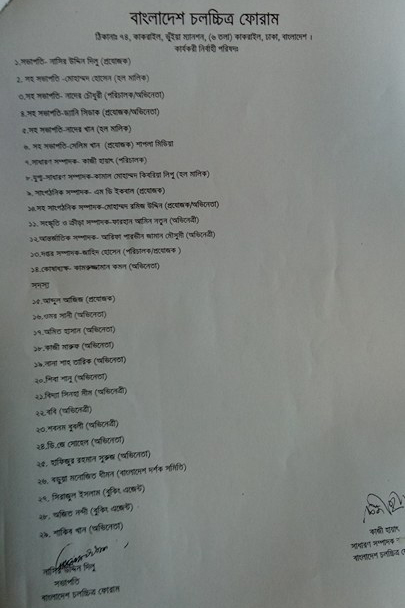 বাংলাদেশ চলচ্চিত্র ফোরাম
ঠিকানাঃ ৭৪, কাকরাইল, ভূঁইয়া ম্যানশন, (৬ তলা) কাকরাইল, ঢাকা, বাংলাদেশ ।
কার্যকরী নির্বাহী পরিষদঃ
১.সভাপতি- নাসির উদ্দিন দিলু (প্রযোজক)
২. সহ সভাপতি -মোহাম্মদ হোসেন (হল মালিক)
৩.সহ সভাপতি- নাদের চৌধুরী (পরিচালক/অভিনেতা)
৪.সহ সভাপতি-ড্যানি সিডাক (প্রযোজক/অভিনেতা)
৫.সহ সভাপতি-নাদের খান (হল মালিক)
৬. সহ সভাপতি-সেলিম খান (প্রযোজক) শাপলা মিডিয়া
৭.সাধারণ সম্পাদক- কাজী হায়াৎ (পরিচালক)
৮.যুগ্ম-সাধারণ সম্পাদক-কামাল মোহাম্মদ কিবরিয়া লিপু (হল মালিক)
৯. সাংগঠনিক সম্পাদক- এম ডি ইকবাল (প্রযোজক)
১০.সহ সাংগঠনিক সম্পাদক-মোহাম্মদ রমিজ উদ্দিন (প্রযোজক/অভিনেতা)
১১. সংস্কৃতি ও ক্রীড়া সম্পাদক-ফারহান আমিন নতুন (অভিনেত্রী)
১২.আন্তর্জাতিক সম্পাদক- আরিফা পারভীন জামান মৌসুমী (অভিনেত্রী)
১৩.দপ্তর সম্পাদক-জাহিদ হোসেন (পরিচালক/প্রযোজক )
১৪.কোষাধ্যক্ষ- কামরুজ্জামান কমল (অভিনেতা)
সদস্য
১৫.আব্দুল আজিজ (প্রযোজক)
১৬.ওমর সানী (অভিনেতা)
১৭.অমিত হাসান (অভিনেতা)
১৮.কাজী মারুফ (অভিনেতা)
১৯.নানা শাহ তারিক (অভিনেতা)
২০.শিবা শানু (অভিনেতা)
২১.বিদ্যা সিনহা মীম (অভিনেত্রী)
২২.ববি (অভিনেত্রী)
২৩.শবনম বুবলী (অভিনেত্রী)
২৪.ডি.জে সোহেল (অভিনেতা)
২৫. হাফিজুর রহমান সুরুজ (অভিনেতা)
২৬. বড়ুয়া মনোজিত ধীমন (বাংলাদেশ দর্শক সমিতি)
২৭. সিরাজুল ইসলাম (বুকিং এজেন্ট)
২৮. অজিত নন্দী (বুকিং এজেন্ট)
২৯. শাকিব খান (অভিনেতা)
নাসির উদ্দিন দিলু
সভাপতি
বাংলাদেশ চলচ্চিত্র ফোরাম
কাজী হায়াৎ
সাধারণ সম্পাদক
বাংলাদেশ চলচ্চিত্র ফো